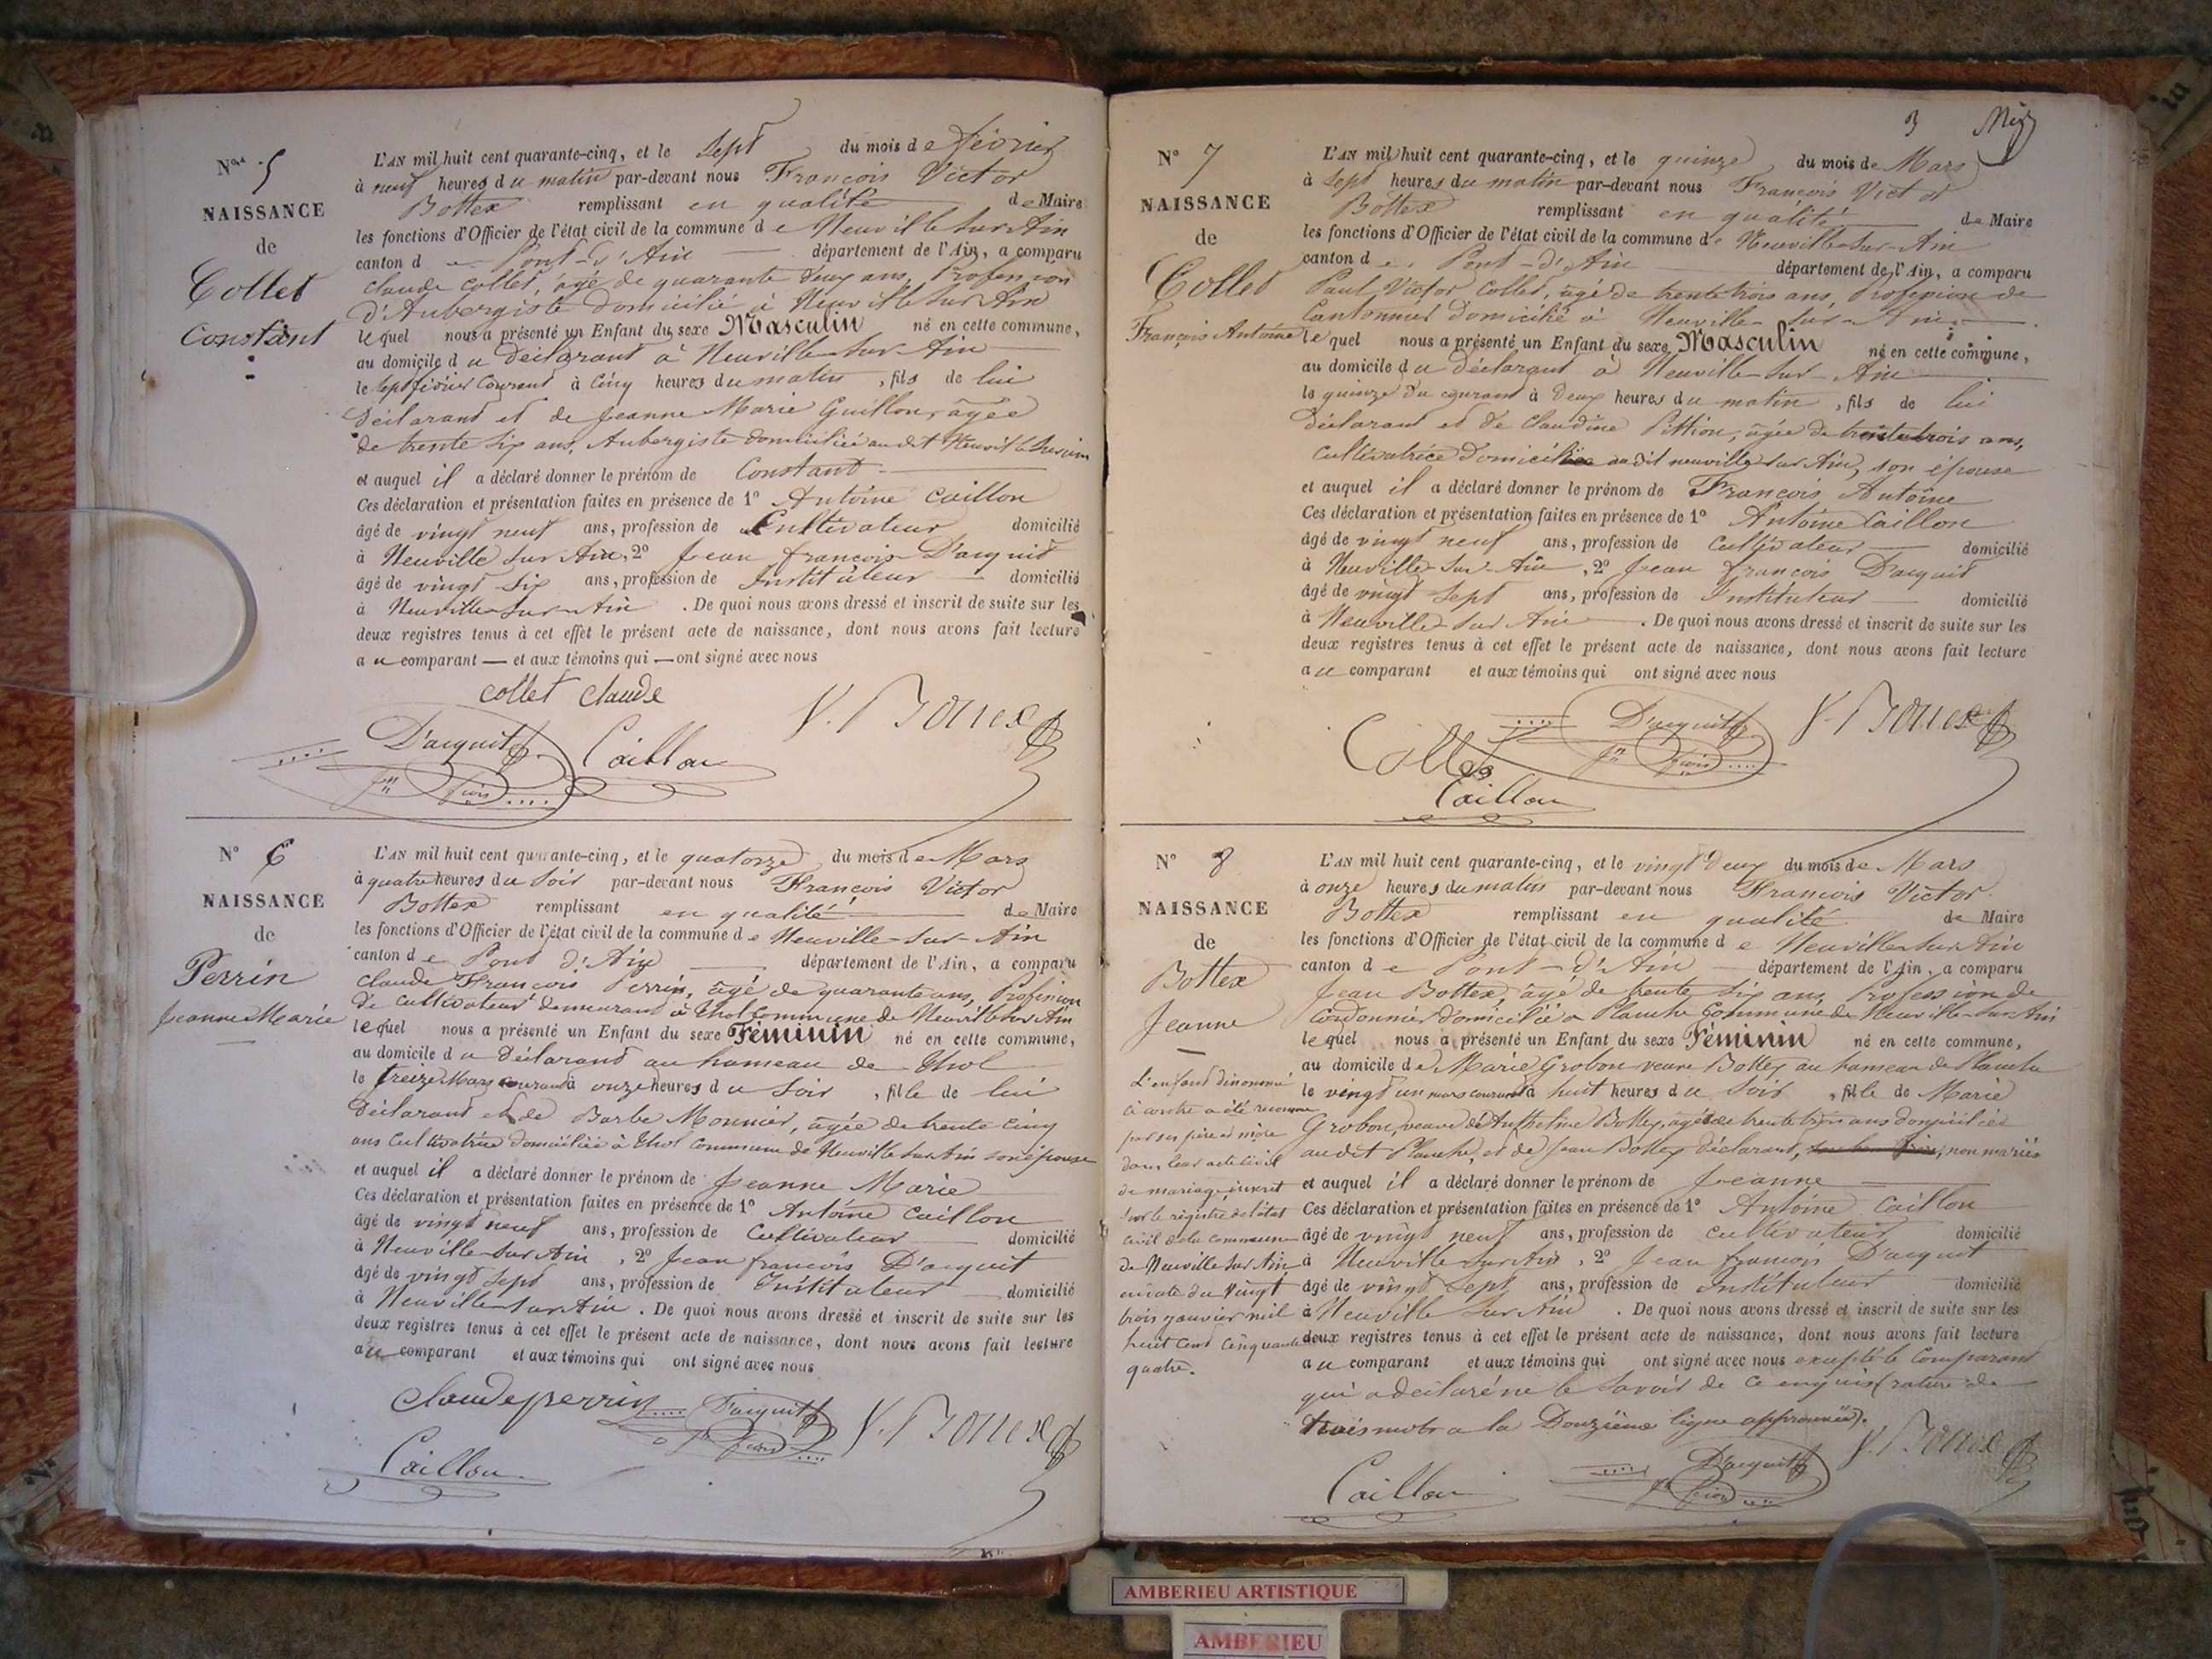 N° 5
NAISSANCE
de
Collet
Constant
L'AN mil huit cent quarante-cinq, et le sept du mois de février
à neuf heures du matin par-devant nous François Victor
Bottex remplissant en qualité de Maire
les fonctions d'Officier de l'état civil de la commune de Neuville sur Ain
canton de Pont-d'Ain département de l'Ain, a comparu
Claude Collet, âgé de quarante deux ans, Profession
d'Aubergiste domicilié à Neuville sur Ain
lequel nous a présenté un Enfant du sexe Masculin né en cette commune,
au domicile du déclarant à Neuville sur Ain
le sept février courant à cinq heures du matin, fils de lui
Déclarant et de Jeanne Marie Guillon, âgée
de trente six ans, Aubergiste domiciliée audit Neuville sur ain
et auquel il a déclaré donner le prénom de Constant
Ces déclaration et présentation faites en présence de 1° Antoine Caillon
âgé de vingt neuf ans, profession de Cultivateur domicilié
à Neuville sur Ain, 2° Jean françois D'acquit
âgé de vingt six ans, profession de Instituteur domicilié
à Neuville sur Ain. De quoi nous avons dressé et inscrit de suite sur les
deux registres tenus à cet effet le présent acte de naissance, dont nous avons fait lecture
au comparant — et aux témoins qui — ont signé avec nous
collet claude
V. Bottex
D'acquit
Jn fçois
Caillon
N° 6
NAISSANCE
de
Perrin
Jeanne Marie
L'AN mil huit cent quarante-cinq, et le quatorze du mois de Mars
à quatre heures du soir par-devant nous François Victor
Bottex remplissant en qualité de Maire
les fonctions d'Officier de l'état civil de la commune de Neuville-sur-Ain
canton de Pont d'Ain département de l'Ain, a comparu
Claude François Perrin, âgé de quarante ans, Profession
de cultivateur demeurant à Thol Commune de Neuville sur Ain
lequel nous a présenté un Enfant du sexe Féminin né en cette commune,
au domicile du déclarant au hameau de Thol
le treize Mars courant à onze heures du soir, fille de lui
Déclarant et de Barbe Monnier, âgée de trente cinq
ans Cultivatrice domiciliée à Thol Commune de Neuville sur Ain son épouse
et auquel il a déclaré donner le prénom de Jeanne Marie
Ces déclaration et présentation faites en présence de 1° Antoine Caillon
âgé de vingt neuf ans, profession de Cultivateur domicilié
à Neuville sur Ain, 2° Jean françois D'acquit
âgé de vingt sept ans, profession de Instituteur domicilié
à Neuville sur Ain. De quoi nous avons dressé et inscrit de suite sur les
deux registres tenus à cet effet le présent acte de naissance, dont nous avons fait lecture
au comparant et aux témoins qui ont signé avec nous
Claude perrin
D'acquit
Jn fçois
V. Bottex
Caillon
3
N° 7
NAISSANCE
de
Collet
François Antoine
L'AN mil huit cent quarante-cinq, et le quinze du mois de Mars
à sept heures du matin par-devant nous François Victor
Bottex remplissant en qualité de Maire
les fonctions d'Officier de l'état civil de la commune de Neuville-sur-Ain
canton de Pont-d'Ain département de l'Ain, a comparu
Paul Victor Collet, âgé de trente trois ans, Profession de
Cantonnier domicilié à Neuville sur Ain
lequel nous a présenté un Enfant du sexe Masculin né en cette commune,
au domicile du déclarant à Neuville-sur-Ain
le quinze du courant à deux heures du matin, fils de lui
Déclarant et de Claudine Pittion, âgée de trente trois ans,
Cultivatrice domiciliée audit neuville sur Ain, son épouse
et auquel il a déclaré donner le prénom de François Antoine
Ces déclaration et présentation faites en présence de 1° Antoine Caillon
âgé de vingt neuf ans, profession de cultivateur domicilié
à Neuville sur Ain, 2° Jean françois D'acquit
âgé de vingt sept ans, profession de Instituteur domicilié
à Neuville sur Ain. De quoi nous avons dressé et inscrit de suite sur les
deux registres tenus à cet effet le présent acte de naissance, dont nous avons fait lecture
au comparant et aux témoins qui ont signé avec nous
Collet
D'acquit
Jn fçois
V. Bottex
Caillon
N° 8
NAISSANCE
de
Bottex
Jeanne
L'enfant dénommé
ci contre a été reconnu
par ses père et mère
dans leur acte civil
de mariage inscrit
sur le registre de l'état
civil de la commune
de Neuville sur Ain
en date du vingt
trois janvier mil
huit cent cinquante
quatre.
L'AN mil huit cent quarante-cinq, et le vingt deux du mois de Mars
à onze heures du matin par-devant nous François Victor
Bottex remplissant en qualité de Maire
les fonctions d'Officier de l'état civil de la commune de Neuville sur Ain
canton de Pont-d'Ain département de l'Ain, a comparu
Jean Bottex, âgé de trente six ans, Profession de
Cordonnier domicilié à Planche Commune de Neuville-sur-Ain
lequel nous a présenté un Enfant du sexe Féminin né en cette commune,
au domicile de Marie Grobon veuve Bottex au hameau de Planche
le vingt un mars courant à huit heures du soir, fille de Marie
Grobon, veuve de Anthelme Bottex, âgée de trente trois ans domiciliée
audit Planche, et de Jean Bottex déclarant, non mariés
et auquel il a déclaré donner le prénom de Jeanne
Ces déclaration et présentation faites en présence de 1° Antoine Caillon
âgé de vingt neuf ans, profession de cultivateur domicilié
à Neuville sur Ain, 2° Jean françois D'acquit
âgé de vingt sept ans, profession de Instituteur domicilié
à Neuville sur Ain. De quoi nous avons dressé et inscrit de suite sur les
deux registres tenus à cet effet le présent acte de naissance, dont nous avons fait lecture
au comparant et aux témoins qui ont signé avec nous excepté le Comparant
qui a déclaré ne le savoir de ce enquis (rature de
trois mots a la Douzième ligne approuvée).
V. Bottex
D'acquit
Jn fçois
Caillon
AMBERIEU ARTISTIQUE
AMBERIEU